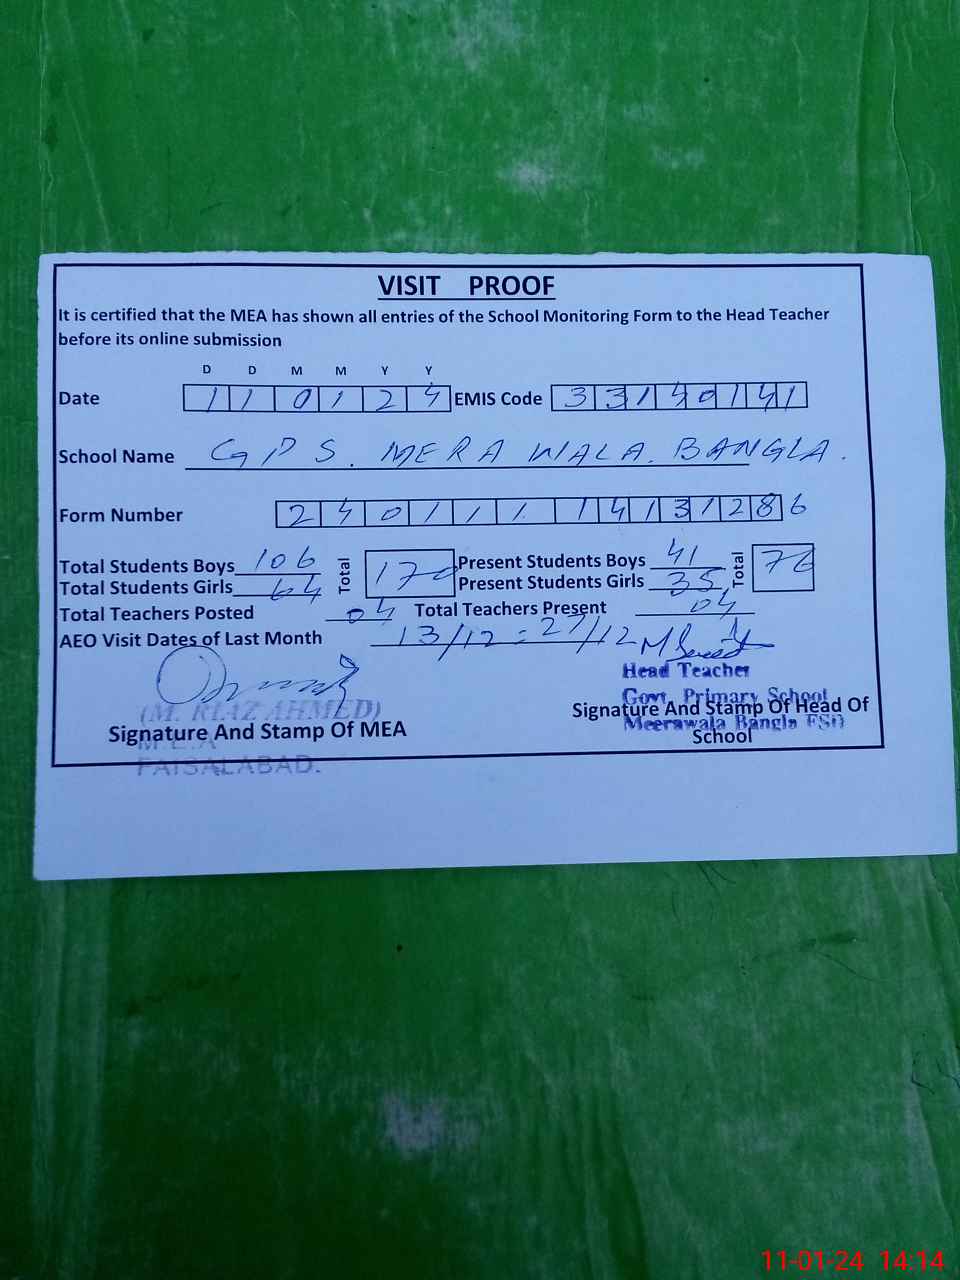 VISIT PROOF
It is certified that the MEA has shown all entries of the School Monitoring Form to the Head Teacher
before its online submission
D D M M Y Y
Date 1 1 0 1 2 4 EMIS Code 3 3 1 4 0 1 4 1
School Name GPS. MERA WALA. BANGLA.
Form Number 2 4 0 1 1 1 1 4 1 3 1 2 8 6
Total Students Boys 106 Total 170 Present Students Boys 41 Total 76
Total Students Girls 64 Present Students Girls 35
Total Teachers Posted 04 Total Teachers Present 04
AEO Visit Dates of Last Month 13/12 = 27/12
Head Teacher
Govt. Primary School
Meerawala Bangla FSD
(M. RIAZ AHMED)
Signature And Stamp Of MEA Signature And Stamp Of Head Of
School
M.E.A
FAISALABAD.
11-01-24 14:14